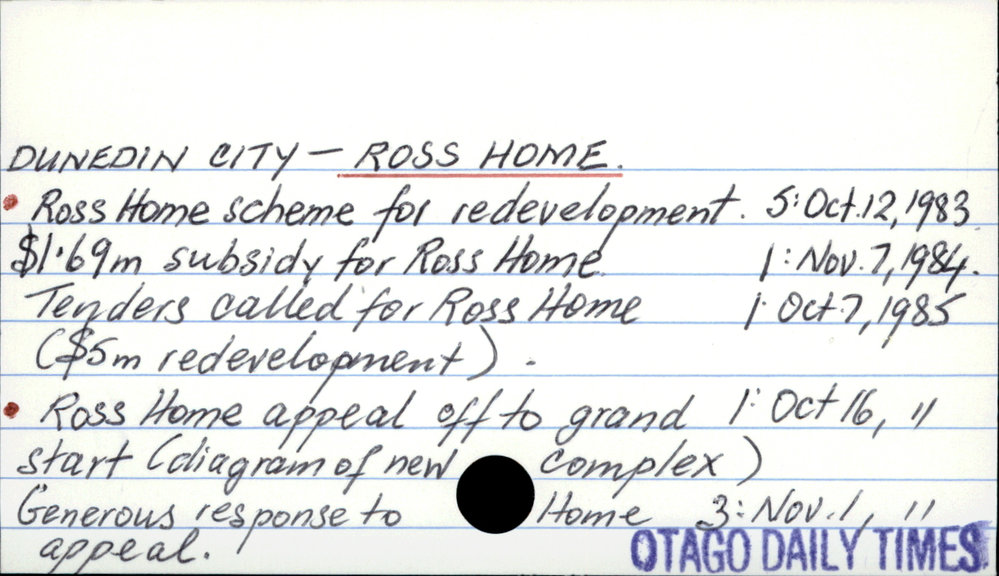 DUNEDIN CITY — ROSS HOME.
• Ross Home scheme for redevelopment. 5: Oct. 12, 1983
$1.69m subsidy for Ross Home. 1: Nov. 7, 1984.
Tenders called for Ross Home 1: Oct 7, 1985
($5m redevelopment).
• Ross Home appeal off to grand 1: Oct 16, "
start (diagram of new complex)
Generous response to Home 3: Nov. 1, "
appeal.
OTAGO DAILY TIMES